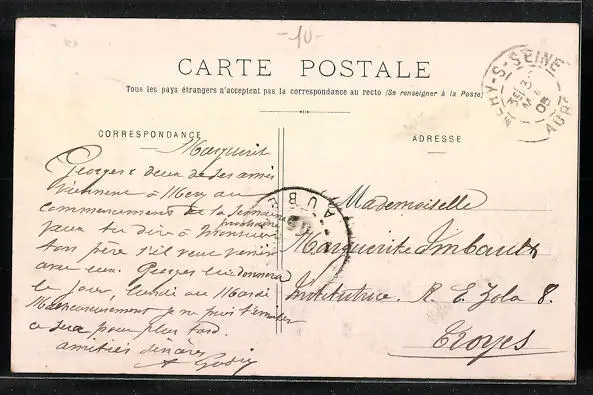 -10-
CARTE POSTALE
Tous les pays étrangers n'acceptent pas la correspondance au recto (Se renseigner à la Poste)
MERY-S-SEINE
AUBE
CORRESPONDANCE
ADRESSE
Marguerite
Georges & deux de ses amis
viennent à Mery au
commencement de la semaine
prochaine
peux tu dire à Monsieur
ton père s'il veut venir
avec eux. Georges lui donnera
le jour, lundi ou Mardi
Malheureusement je ne puis t'emmener
ce sera pour plus tard.
amitiés sincères
AUBE
Mademoiselle
Marguerite Imbault
Institutrice. R. E. Zola 8.
Troyes